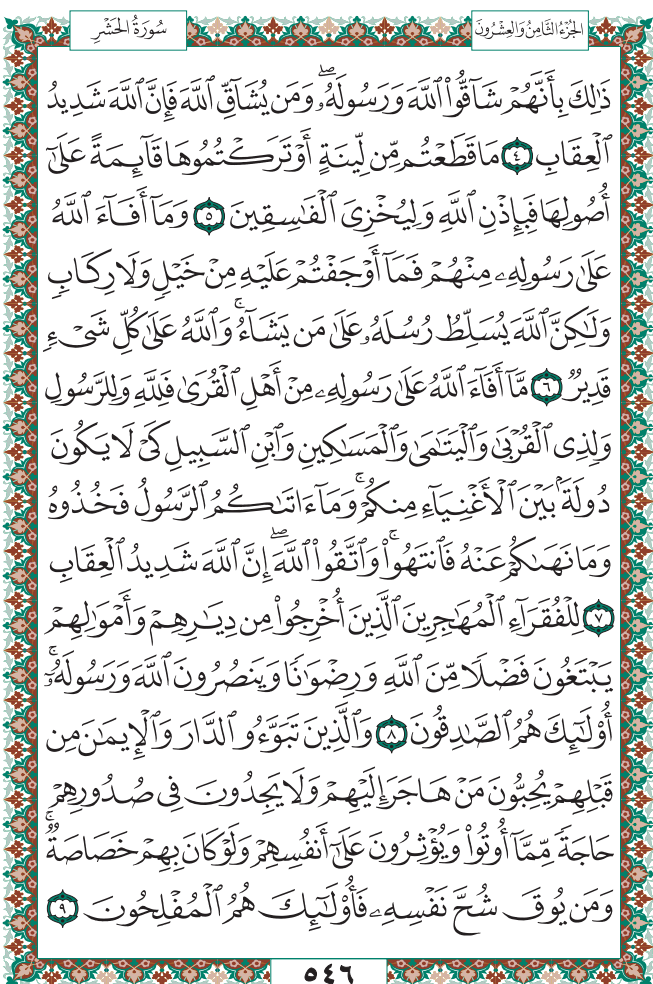 سُورَةُ الحَشْرِ
الجُزْءُ الثَّامِنُ وَالعِشْرُونَ
ذَٰلِكَ بِأَنَّهُمْ شَآقُّوا۟ ٱللَّهَ وَرَسُولَهُۥۖ وَمَن يُشَآقِّ ٱللَّهَ فَإِنَّ ٱللَّهَ شَدِيدُ
ٱلْعِقَابِ ٤ مَا قَطَعْتُم مِّن لِّينَةٍ أَوْ تَرَكْتُمُوهَا قَآئِمَةً عَلَىٰٓ
أُصُولِهَا فَبِإِذْنِ ٱللَّهِ وَلِيُخْزِىَ ٱلْفَٰسِقِينَ ٥ وَمَآ أَفَآءَ ٱللَّهُ
عَلَىٰ رَسُولِهِۦ مِنْهُمْ فَمَآ أَوْجَفْتُمْ عَلَيْهِ مِنْ خَيْلٍ وَلَا رِكَابٍ
وَلَٰكِنَّ ٱللَّهَ يُسَلِّطُ رُسُلَهُۥ عَلَىٰ مَن يَشَآءُۚ وَٱللَّهُ عَلَىٰ كُلِّ شَىْءٍ
قَدِيرٌ ٦ مَّآ أَفَآءَ ٱللَّهُ عَلَىٰ رَسُولِهِۦ مِنْ أَهْلِ ٱلْقُرَىٰ فَلِلَّهِ وَلِلرَّسُولِ
وَلِذِى ٱلْقُرْبَىٰ وَٱلْيَتَٰمَىٰ وَٱلْمَسَٰكِينِ وَٱبْنِ ٱلسَّبِيلِ كَىْ لَا يَكُونَ
دُولَةًۢ بَيْنَ ٱلْأَغْنِيَآءِ مِنكُمْۚ وَمَآ ءَاتَىٰكُمُ ٱلرَّسُولُ فَخُذُوهُ
وَمَا نَهَىٰكُمْ عَنْهُ فَٱنتَهُوا۟ۚ وَٱتَّقُوا۟ ٱللَّهَۖ إِنَّ ٱللَّهَ شَدِيدُ ٱلْعِقَابِ
٧ لِلْفُقَرَآءِ ٱلْمُهَٰجِرِينَ ٱلَّذِينَ أُخْرِجُوا۟ مِن دِيَٰرِهِمْ وَأَمْوَٰلِهِمْ
يَبْتَغُونَ فَضْلًا مِّنَ ٱللَّهِ وَرِضْوَٰنًا وَيَنصُرُونَ ٱللَّهَ وَرَسُولَهُۥٓۚ
أُو۟لَٰٓئِكَ هُمُ ٱلصَّٰدِقُونَ ٨ وَٱلَّذِينَ تَبَوَّءُو ٱلدَّارَ وَٱلْإِيمَٰنَ مِن
قَبْلِهِمْ يُحِبُّونَ مَنْ هَاجَرَ إِلَيْهِمْ وَلَا يَجِدُونَ فِى صُدُورِهِمْ
حَاجَةً مِّمَّآ أُوتُوا۟ وَيُؤْثِرُونَ عَلَىٰٓ أَنفُسِهِمْ وَلَوْ كَانَ بِهِمْ خَصَاصَةٌۚ
وَمَن يُوقَ شُحَّ نَفْسِهِۦ فَأُو۟لَٰٓئِكَ هُمُ ٱلْمُفْلِحُونَ ٩
٥٤٦